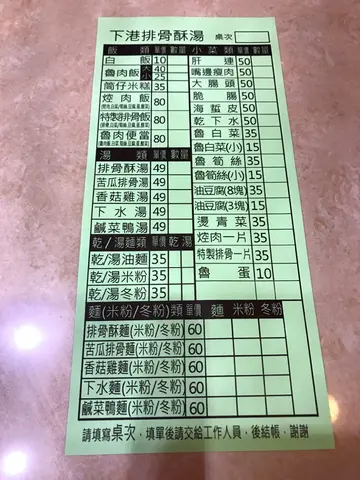 下港排骨酥湯 桌次
飯類 單價 數量 小菜類 單價 數量
白飯 10 肝連 50
魯肉飯 大 40 小 25 嘴邊瘦肉 50
大腸頭 50
筒仔米糕 35 脆腸 50
焢肉飯 80 海蜇皮 50
乾下水 50
特製排骨飯 80 魯白菜 35
魯白菜(小) 15
魯肉便當 80 魯筍絲 35
湯類 單價 數量 魯筍絲(小) 15
排骨酥湯 49 油豆腐(8塊) 35
苦瓜排骨湯 49 油豆腐(3塊) 15
香菇雞湯 49 燙青菜 35
下水湯 49 焢肉一片 35
鹹菜鴨湯 49 特製排骨一片 35
乾/湯麵類 單價 乾 湯 魯蛋 10
乾/湯油麵 35
乾/湯米粉 35
乾/湯冬粉 35
麵(米粉/冬粉)類 單價 麵 米粉 冬粉
排骨酥麵(米粉/冬粉) 60
苦瓜排骨麵(米粉/冬粉) 60
香菇雞麵(米粉/冬粉) 60
下水麵(米粉/冬粉) 60
鹹菜鴨麵(米粉/冬粉) 60
請填寫桌次,填單後請交給工作人員,後結帳,謝謝